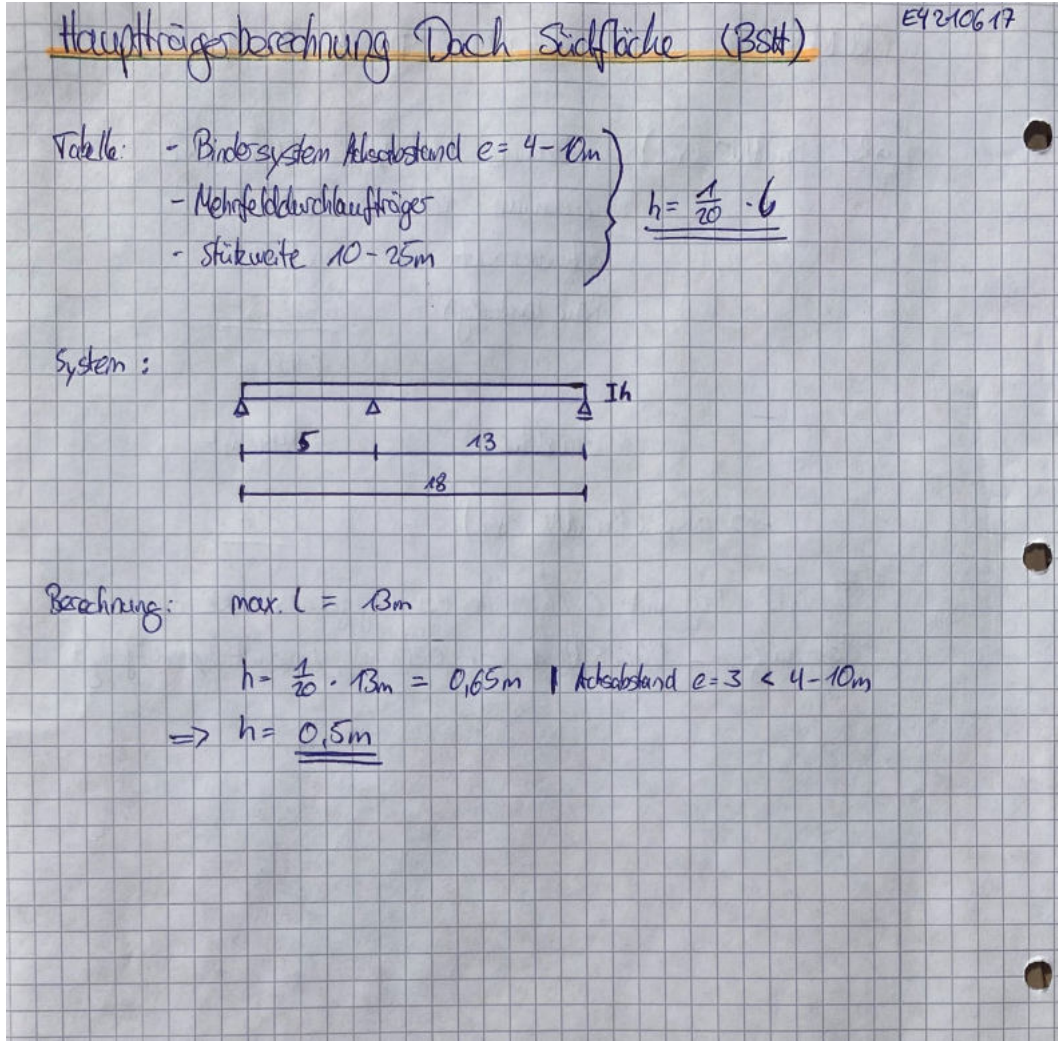 E4210617
Hauptträgerberechnung Dach Südfläche (BSH)
Tabelle: - Bindersystem Achsabstand e = 4 - 10m
- Mehrfelddurchlaufträger
- Stützweite 10 - 25m
h = 1/20 · l
System :
I h
5 13
18
Berechnung: max. l = 13m
h = 1/20 · 13m = 0,65m | Achsabstand e = 3 < 4 - 10m
=> h = 0,5m